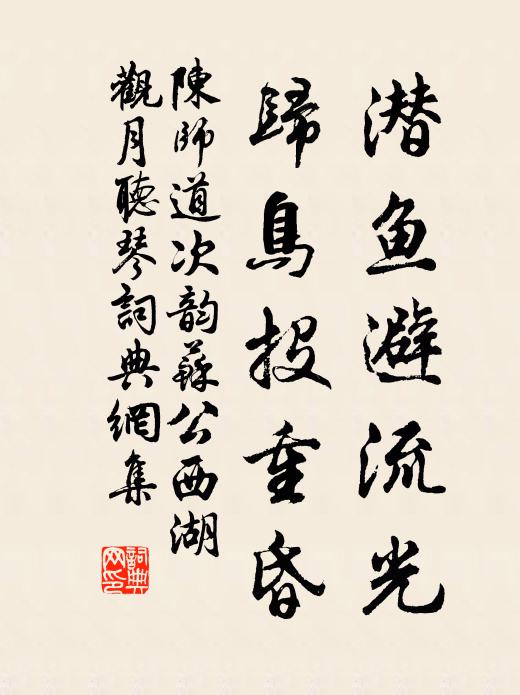 潜鱼避流光
歸鳥投重昏
陳師道次韵蘇公西湖
觀月聽琴詞典網集
詞典
网印